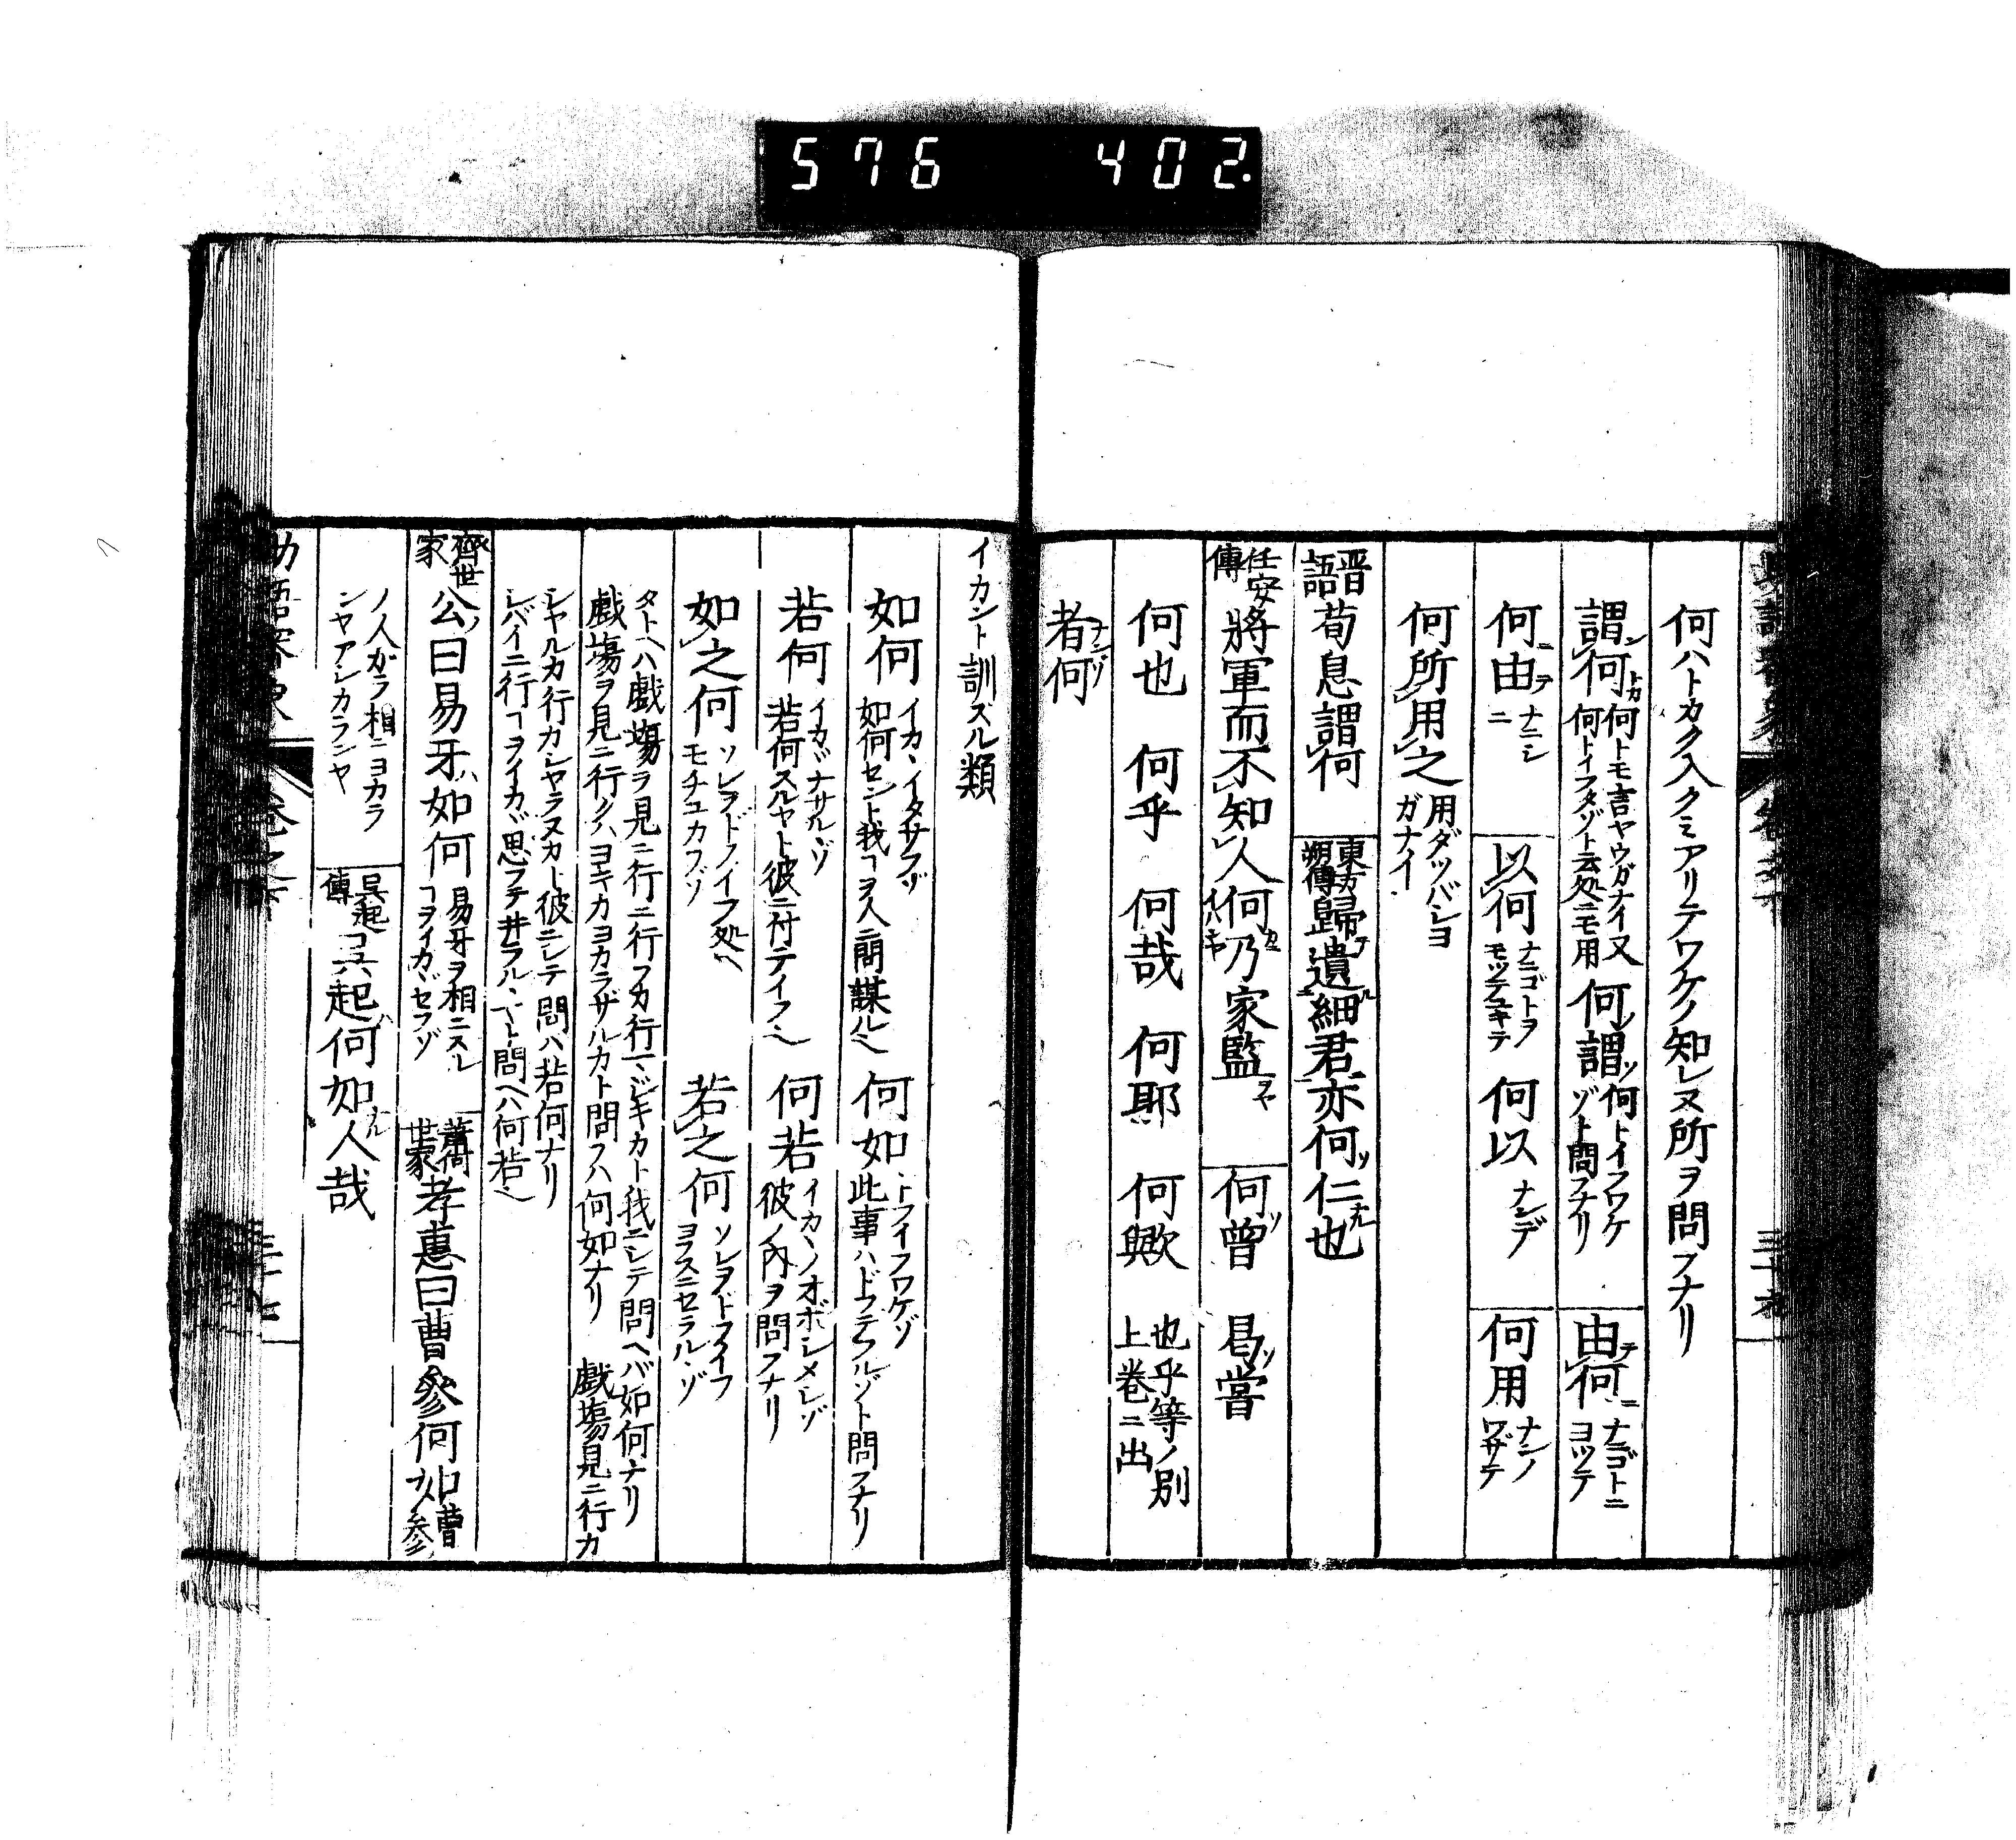 576 402.
何ハトカク入クミアリテワケノ知レヌ所ヲ問フナリ
謂何 何トモ言ヤウガナイ又
何トイフタゾト云処ニモ用
何謂 何トイフワケ
ゾト問フナリ
由何 ナニゴトニ
ヨツテ
何由 ナニシ
ニ
以何 ナニゴトヲ
モツテユキテ
何以 ナンデ
何用 ナンノ
ワザテ
何所用之 用ダツバシヨ
ガナイ
晋語 荀息謂何
東方朔傳 歸遺細君亦何仁也
任安傳 將軍而不知人何乃家監
何曾 曷嘗
何也 何乎 何哉 何耶 何歟 也乎等ノ別
上巻ニ出
者何
イカント訓ズル類
如何 イカヽイタサフゾ
如何セント我ヿヲ人ニ問謀ル也
何如 トフイフワケゾ
此事ハドフテアルゾト問フナリ
若何 イカヾナサルヽゾ
若何スルヤト彼ニ付テイフ也
何若 イカヽノオボシメシゾ
彼ノ内ヲ問フナリ
如之何 ソレヲドフイフ処ヘ
モチユカフゾ
若之何 ソレヲドフイフ
ヨフスニセラルヽゾ
タトヘハ戯塲ヲ見ニ行ニ行フカ行マジキカト我ニシテ問ヘバ如何ナリ
戯塲ヲ見ニ行クハヨキカヨカラザルカト問フハ何如ナリ 戯塲見ニ行カ
シヤルカ行カシヤラヌカト彼ニシテ問ハ若何ナリ
シバイニ行ヿヲイカヾ思フテ井ラルヽヤト問ヘハ何若也
齊世家 公曰易牙如何 易牙ヲ相ニスル
ヿヲイカヾセフゾ
蕭相世家 孝惠曰曹參何如 曹参
ノ人ガラ相ニヨカラ
ンヤアシカランヤ
呉起傳 呉起何如人哉